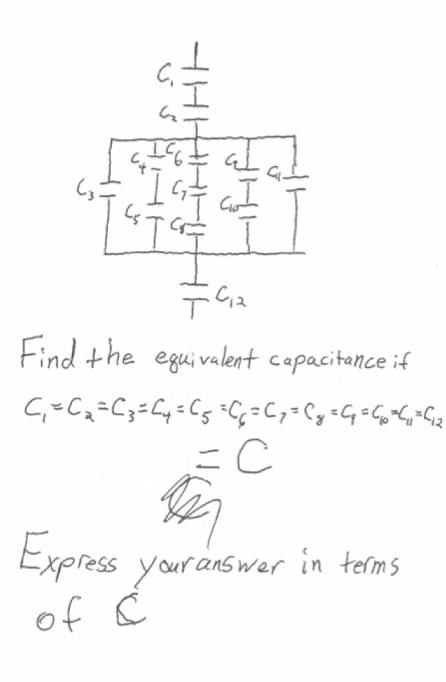 C₁
C₂
C₃
C₄
C₆
C₉
C₁₁
C₇
C₅
C₁₀
C₈
C₁₂
Find the equivalent capacitance if
C₁=C₂=C₃=C₄=C₅=C₆=C₇=C₈=C₉=C₁₀=C₁₁=C₁₂
= C
Express your answer in terms
of C